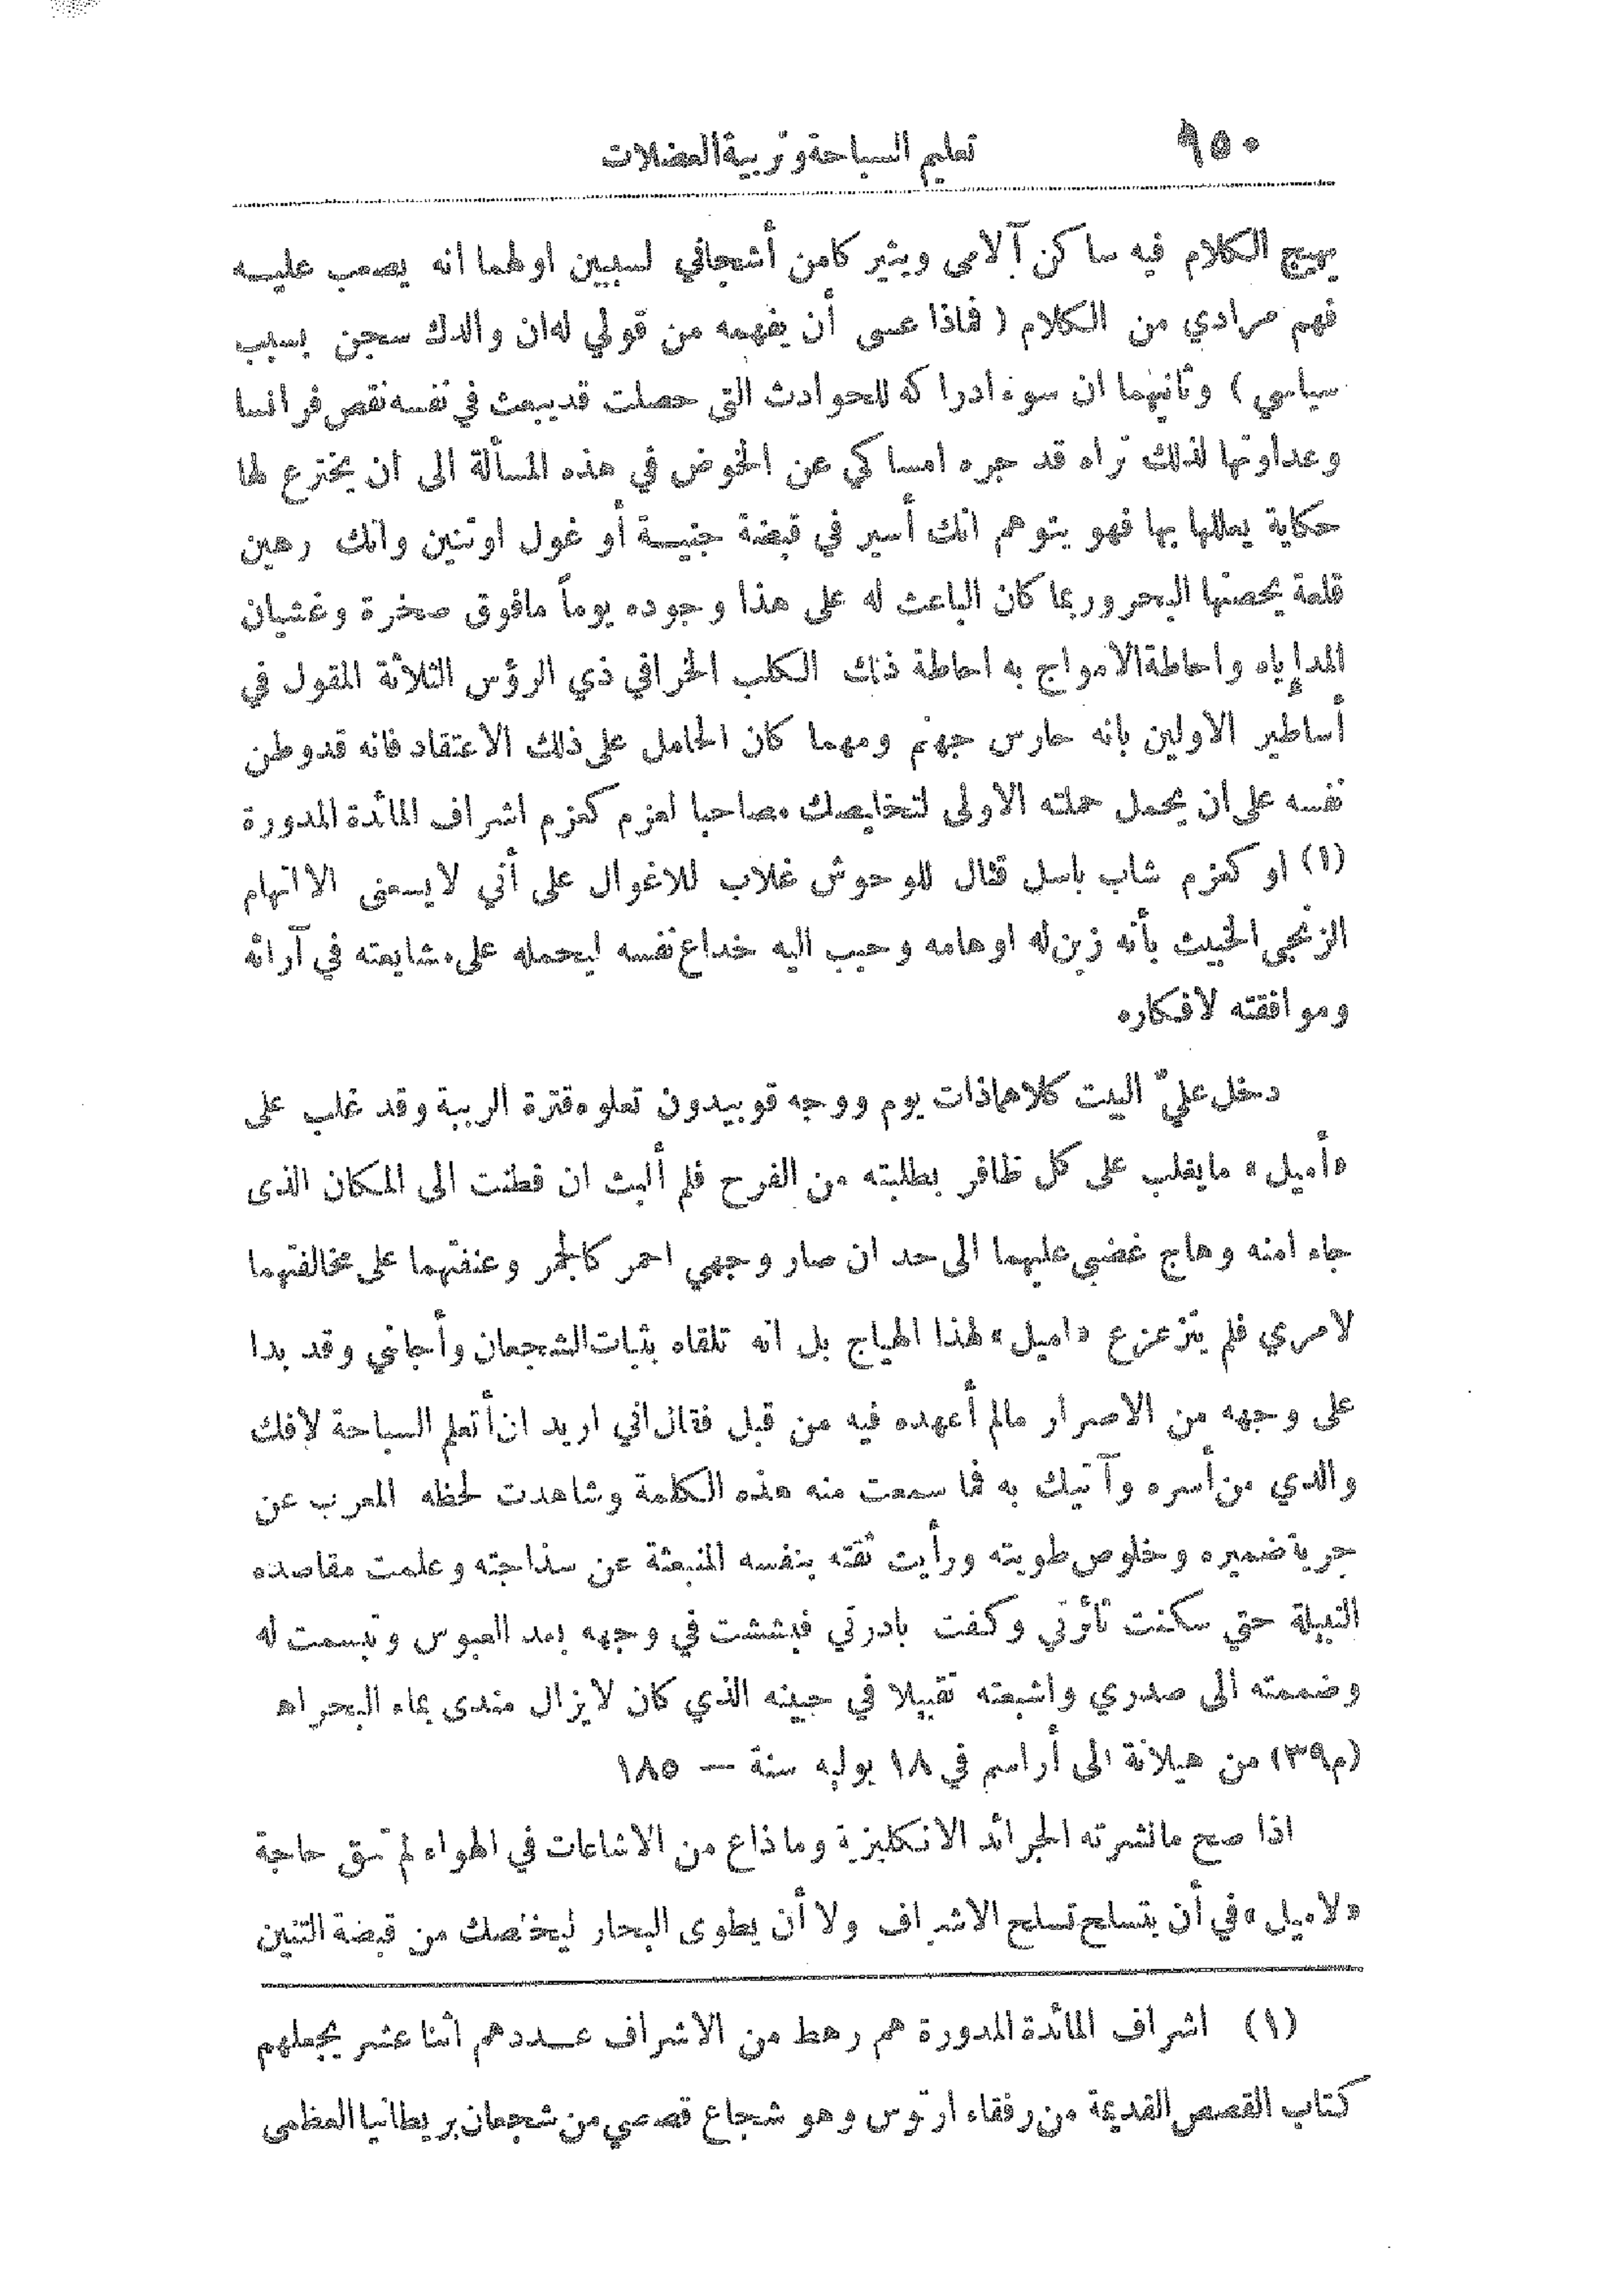 ٩٥٠ تعليم السباحة وتربية العضلات
يهيج الكلام فيه ساكن آلامى ويثير كامن أشجاني لسببين اولهما انه يصعب عليه
فهم مرادي من الكلام ( فاذا عسى أن يفهمه من قولي له ان والدك سجن بسبب
سياسي ) وثانيهما ان سوء ادراكه للحوادث التى حصلت قد يبعث في نفسه نقص فرانسا
وعداوتها لذلك تراه قد جره امساكي عن الخوض في هذه المسألة الى ان يخترع لها
حكاية يعللها بها فهو يتوهم انك أسير في قبضة جنية أو غول او تنين وانك رهين
قلعة يحصنها البحر وربما كان الباعث له على هذا وجوده يوماً مافوق صخرة وغشيان
المد إياه واحاطة الامواج به احاطة ذلك الكلب الخرافي ذي الرؤس الثلاثة المقول في
أساطير الاولين بانه حارس جهنم ومهما كان الحامل على ذلك الاعتقاد فانه قد وطن
نفسه على ان يجعل حملته الاولى لتخليصك مصاحبا لعزم كعزم اشراف المائدة المدورة
(١) او كعزم شاب باسل قتال للوحوش غلاب للاغوال على أني لا يسعنى الا اتهام
الزنجى الخبيث بأنه زين له اوهامه وحبب اليه خداع نفسه ليحمله على مشايعته في آرائه
وموافقته لافكاره
دخل عليّ البيت كلاهما ذات يوم ووجه قوبيدون تعلوه قترة الريبة وقد غلب على
«أميل» ما يغلب على كل ظافر بطلبته من الفرح فلم ألبث ان فطنت الى المكان الذى
جاءا منه وهاج غضبي عليهما الى حد ان صار وجهي احمر كالجمر وعنفتهما على مخالفتهما
لامري فلم يتزعزع «اميل» لهذا الهياج بل انه تلقاه بثبات الشجعان وأجابني وقد بدا
على وجهه من الاصرار مالم أعهده فيه من قبل فقال اني اريد ان أتعلم السباحة لافك
والدي من أسره وآتيك به فما سمعت منه هذه الكلمة وشاهدت لحظه المعرب عن
حرية ضميره وخلوص طويته ورأيت ثقته بنفسه المنبعثة عن سذاجته وعلمت مقاصده
النبيلة حتي سكنت ثأرتي وكفت بادرتي فبششت في وجهه بعد العبوس وتبسمت له
وضممته الى صدري واشبعته تقبيلا في جبينه الذي كان لا يزال مندى بماء البحر اه
(م٣٩) من هيلانة الى أراسم في ١٨ يوليه سنة — ١٨٥
اذا صح ما نشرته الجرائد الانكليزية وما ذاع من الاشاعات في الهواء لم تبق حاجة
«لاميل» في أن يتسلح تسلح الاشراف ولا أن يطوى البحار ليخلصك من قبضة التنين
(١) اشراف المائدة المدورة هم رهط من الاشراف عددهم اثنا عشر يجعلهم
كتاب القصص القديمة من رفقاء ارتوس وهو شجاع قصصي من شجعان بريطانيا العظمى